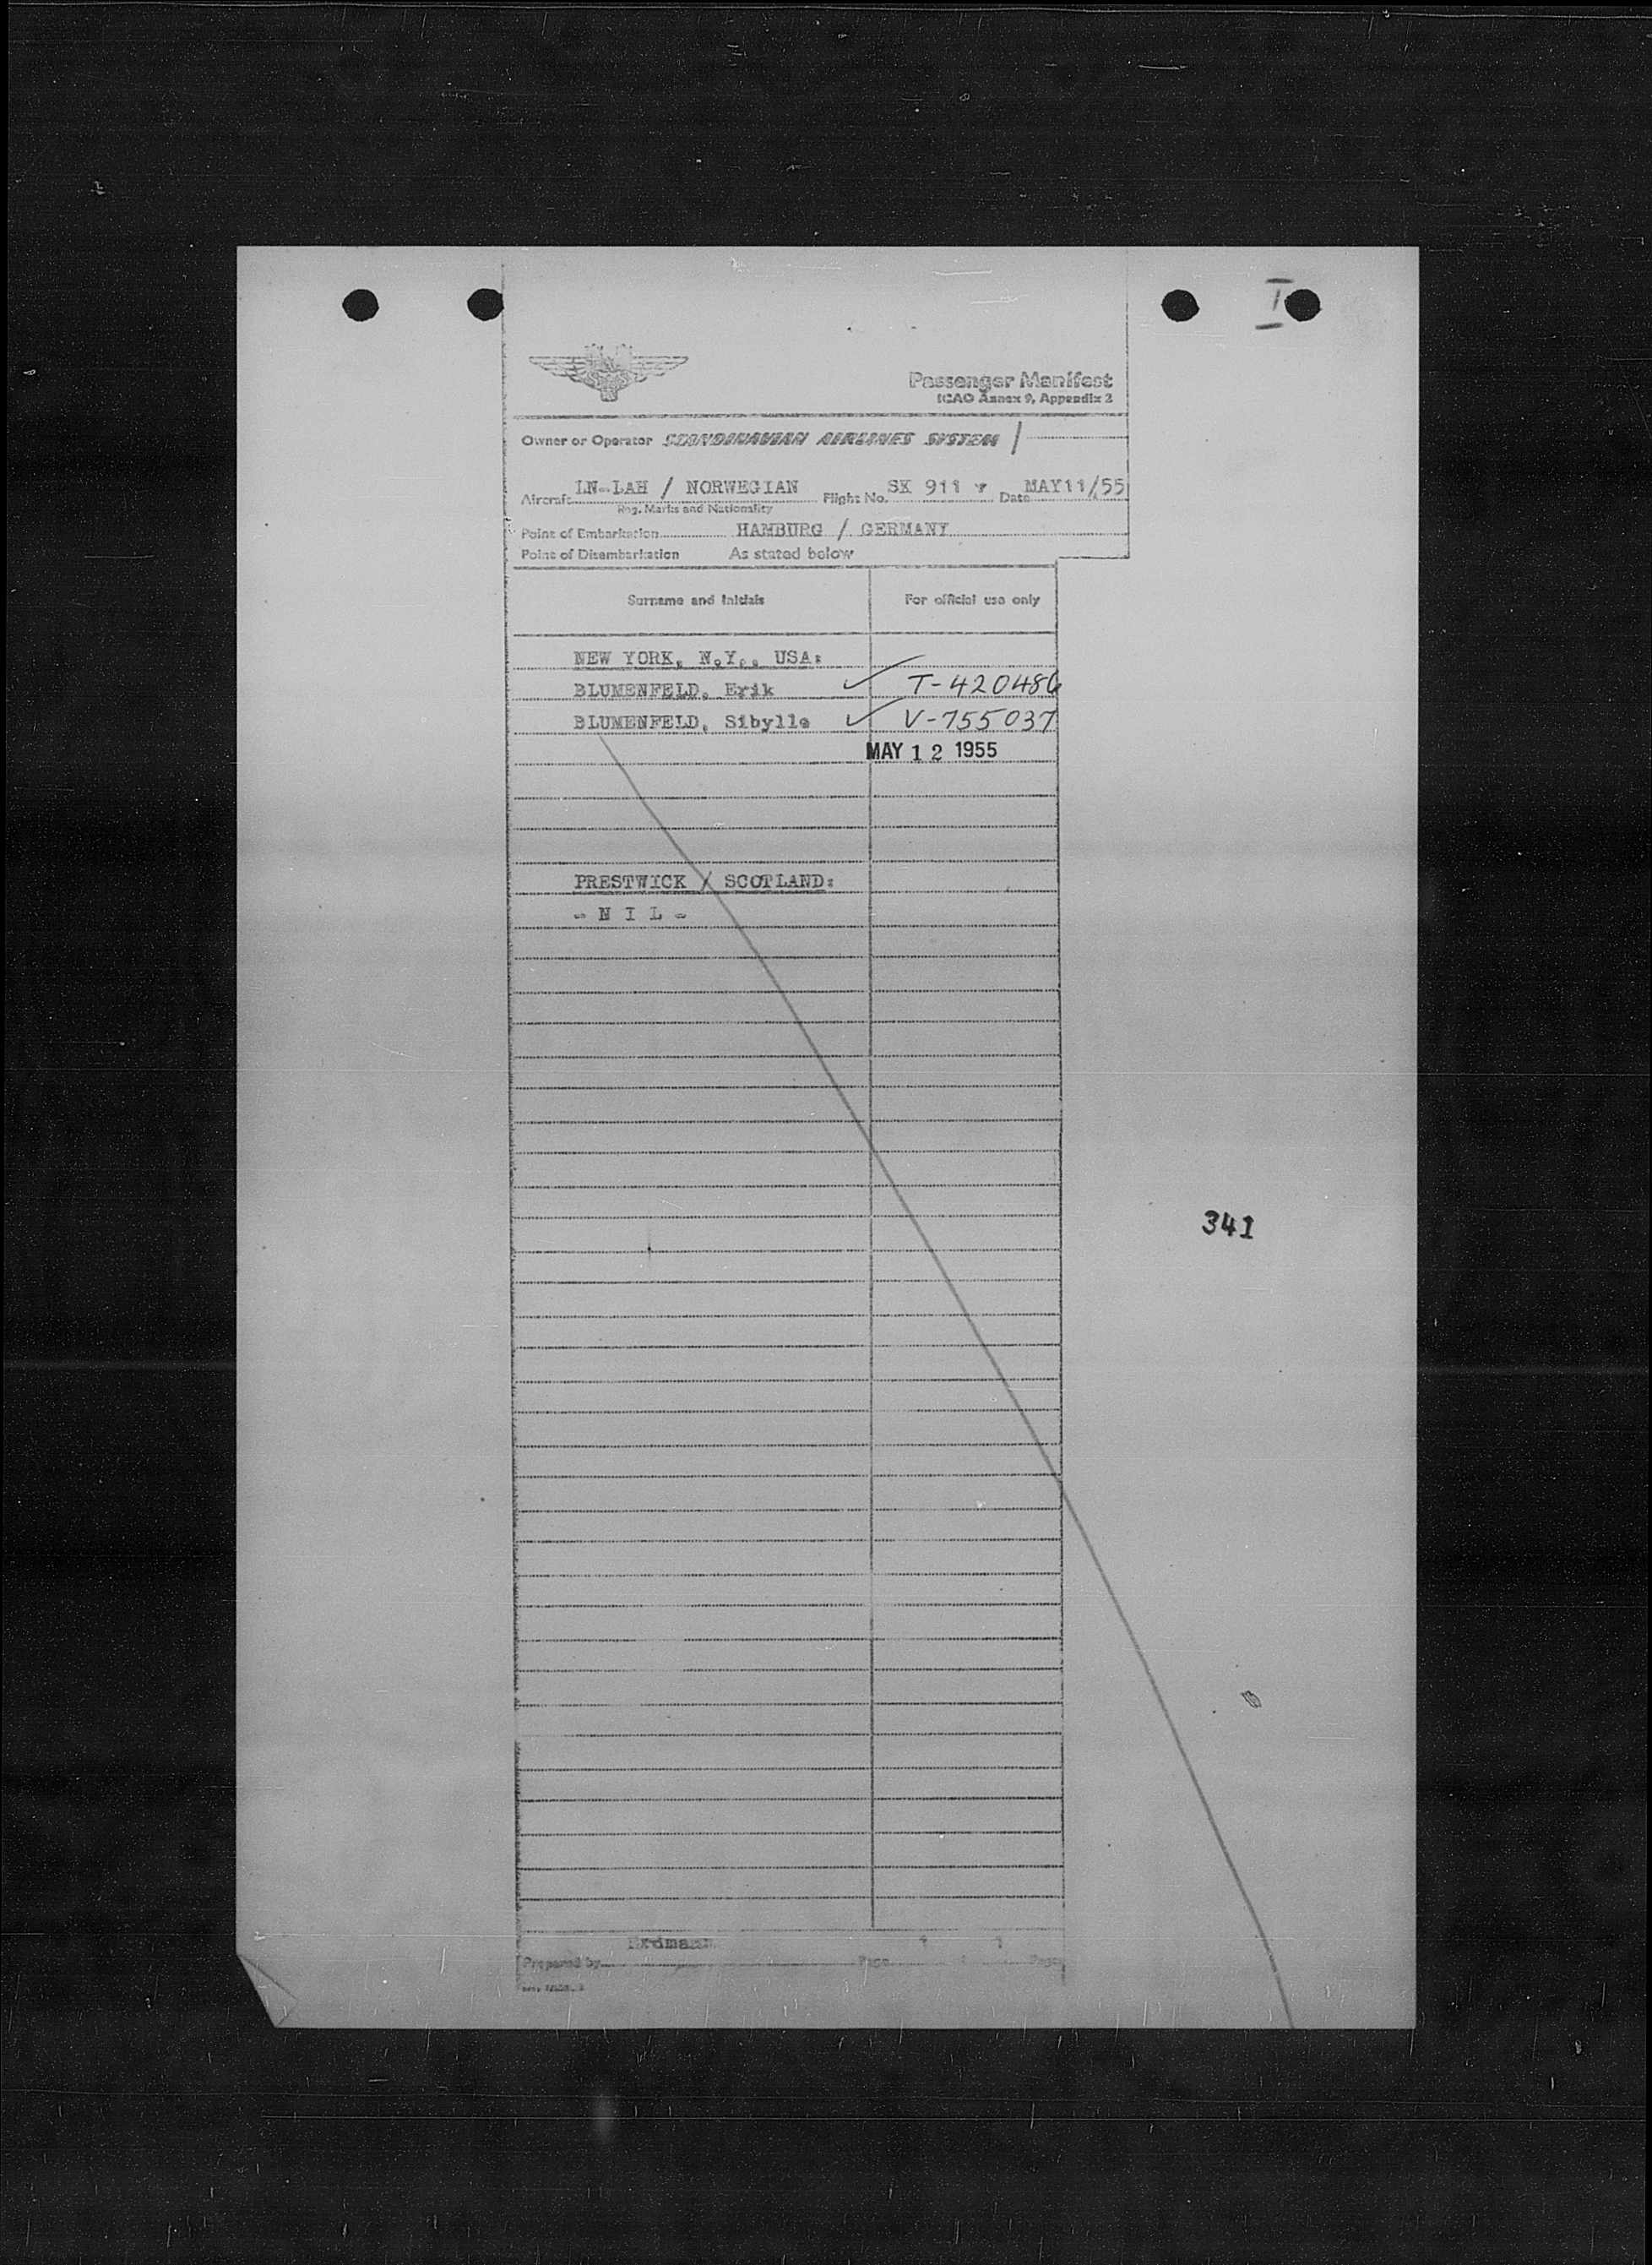 I
Passenger Manifest
ICAO Annex 9, Appendix 2
Owner or Operator SCANDINAVIAN AIRLINES SYSTEM /
Aircraft LN-LAH / NORWEGIAN Flight No. SK 911 Date MAY11/55
Reg. Marks and Nationality
Point of Embarkation HAMBURG / GERMANY
Point of Disembarkation As stated below
Surname and Initials For official use only
NEW YORK, N.Y., USA:
BLUMENFELD, Erik ✓ T-420486
BLUMENFELD, Sibylle ✓ V-755037
MAY 12 1955
PRESTWICK / SCOTLAND:
- N I L -
341
Prepared by Page 1 1 Pages